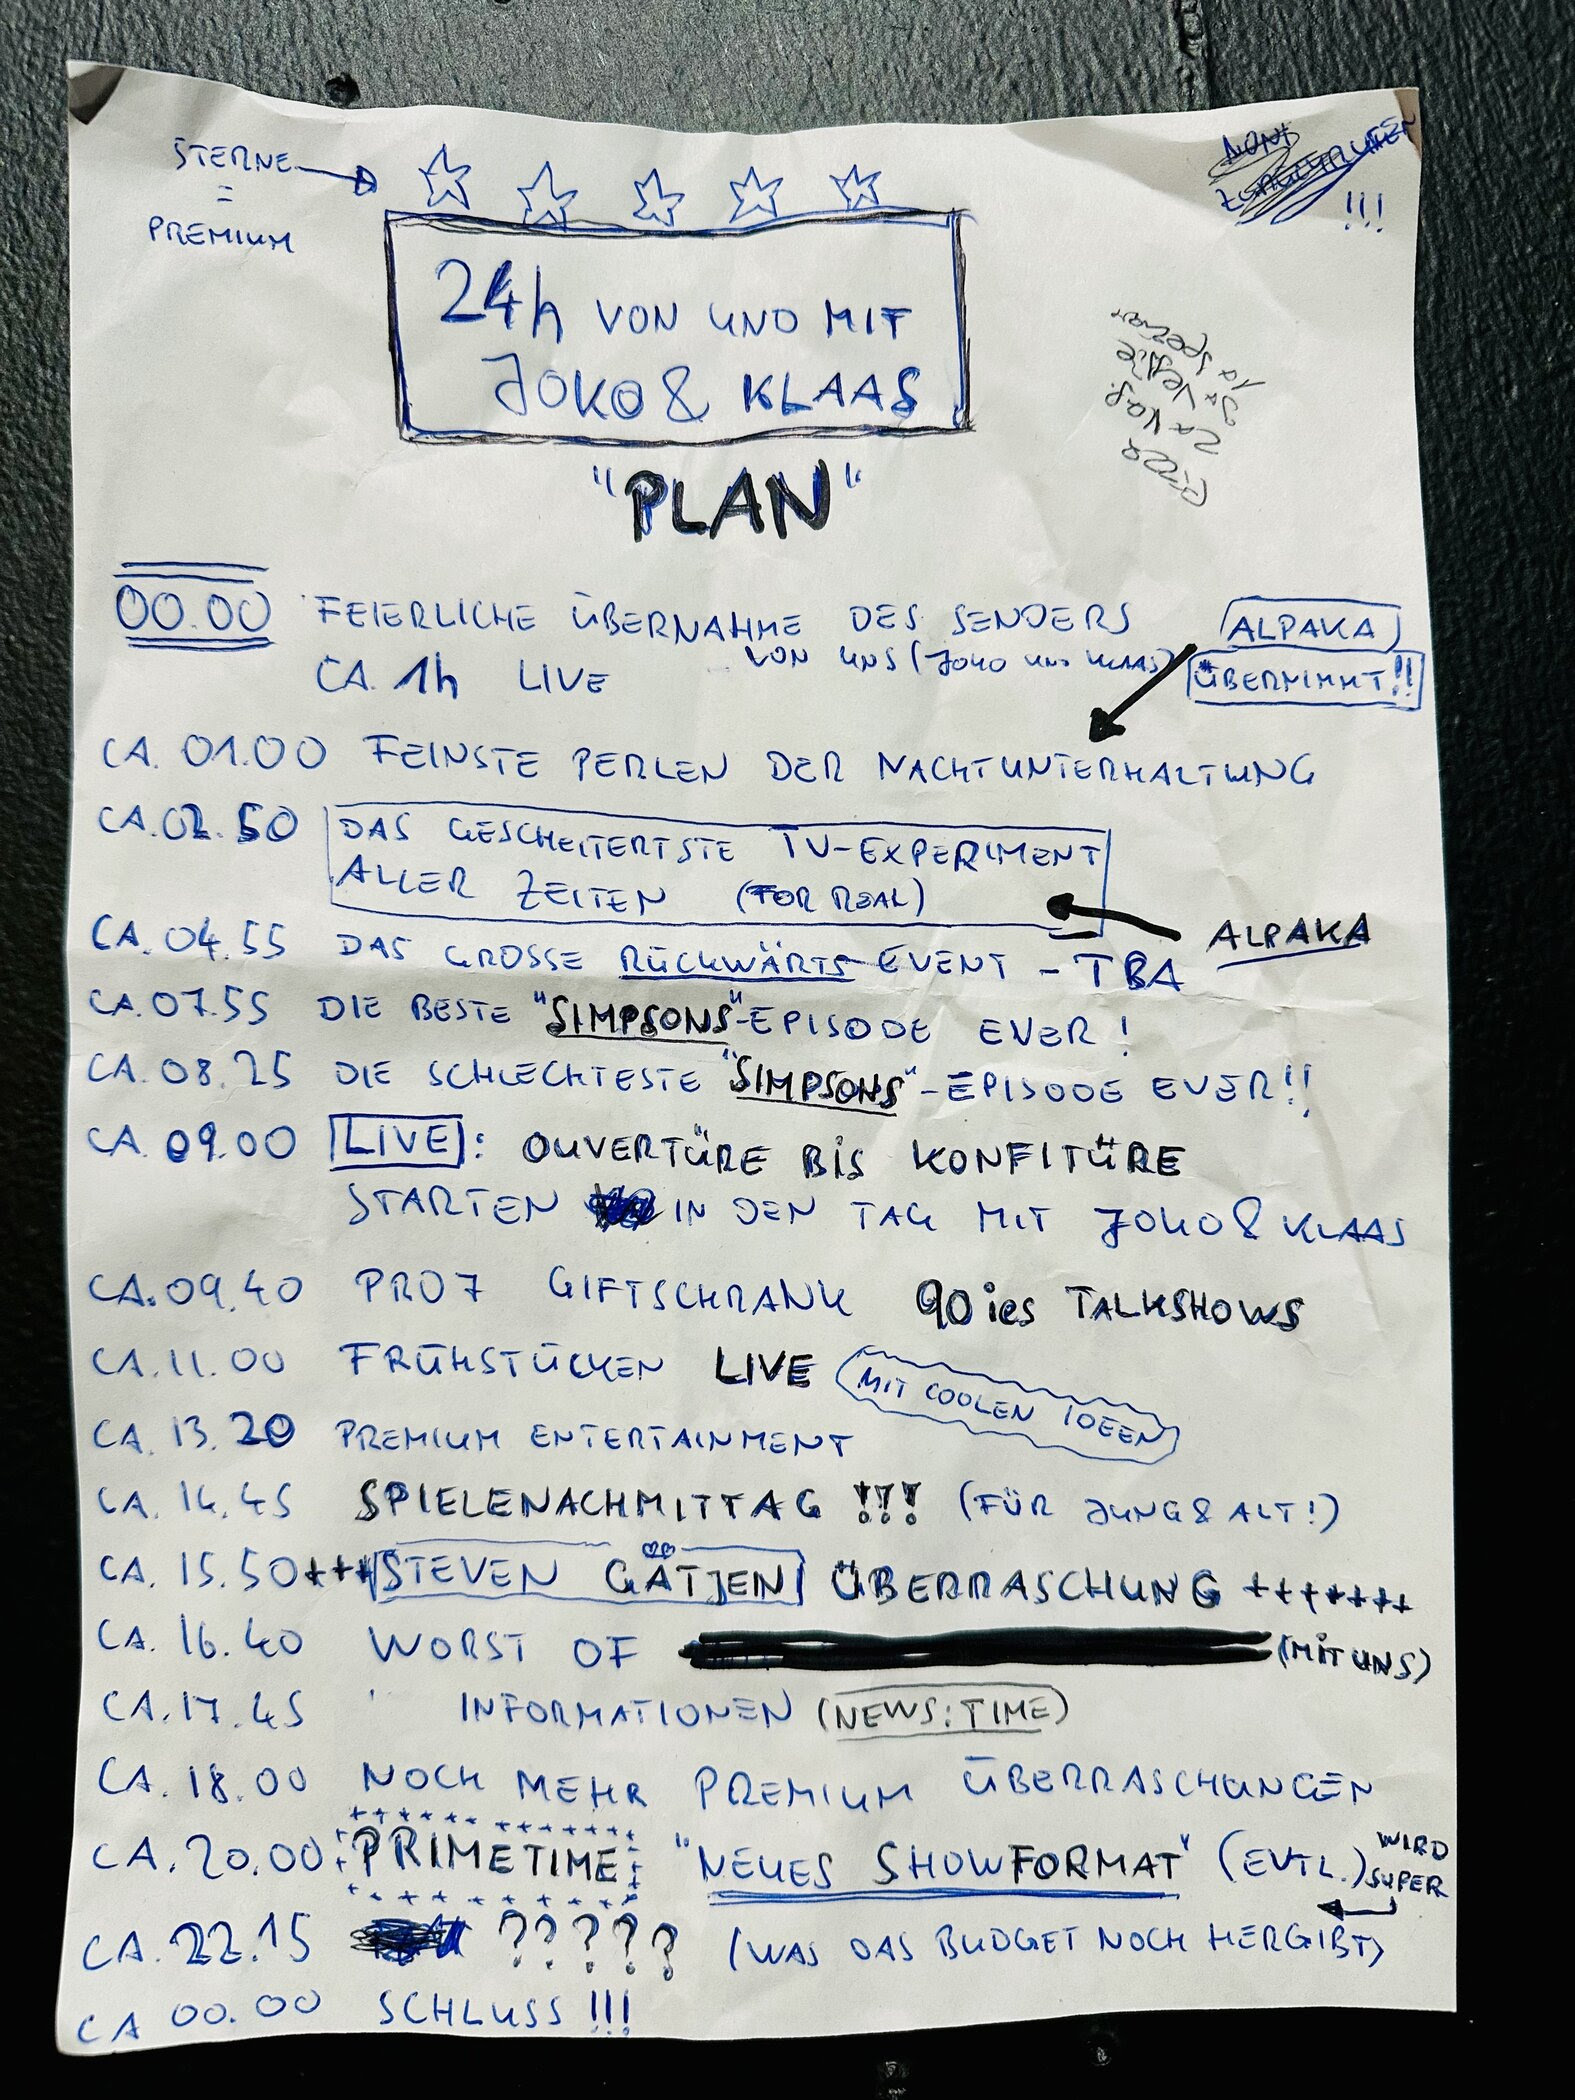 STERNE
=
PREMIUM
!!!
24h VON UND MIT
JOKO & KLAAS
"PLAN"
Pizza
2x Vag.
3x Veggie
1x Speziar
00.00 FEIERLICHE ÜBERNAHME DES SENDERS
VON UNS (JOKO UND KLAAS)
CA. 1h LIVE
ALPAKA
ÜBERNIMMT!!
CA. 01.00 FEINSTE PERLEN DER NACHTUNTERHALTUNG
CA. 02.50 DAS GESCHEITERTSTE TV-EXPERIMENT
ALLER ZEITEN (FOR REAL)
ALPAKA
CA. 04.55 DAS GROSSE RÜCKWÄRTS-EVENT - TBA
CA. 07.55 DIE BESTE "SIMPSONS"-EPISODE EVER!
CA. 08.25 DIE SCHLECHTESTE "SIMPSONS"-EPISODE EVER!!
CA. 09.00 LIVE: OUVERTÜRE BIS KONFITÜRE
STARTEN IN DEN TAG MIT JOKO & KLAAS
CA. 09.40 PRO7 GIFTSCHRANK 90ies TALKSHOWS
CA. 11.00 FRÜHSTÜCKEN LIVE MIT COOLEN IDEEN
CA. 13.20 PREMIUM ENTERTAINMENT
CA. 14.45 SPIELENACHMITTAG !!! (FÜR JUNG & ALT!)
CA. 15.50 +++ STEVEN GÄTJEN ÜBERRASCHUNG +++++++
CA. 16.40 WORST OF (MIT UNS)
CA. 17.45 INFORMATIONEN (NEWS:TIME)
CA. 18.00 NOCH MEHR PREMIUM ÜBERRASCHUNGEN
CA. 20.00 PRIMETIME "NEUES SHOWFORMAT" (EVTL.) WIRD
SUPER
CA. 22.15 ????? (WAS DAS BUDGET NOCH HERGIBT)
CA 00.00 SCHLUSS!!!